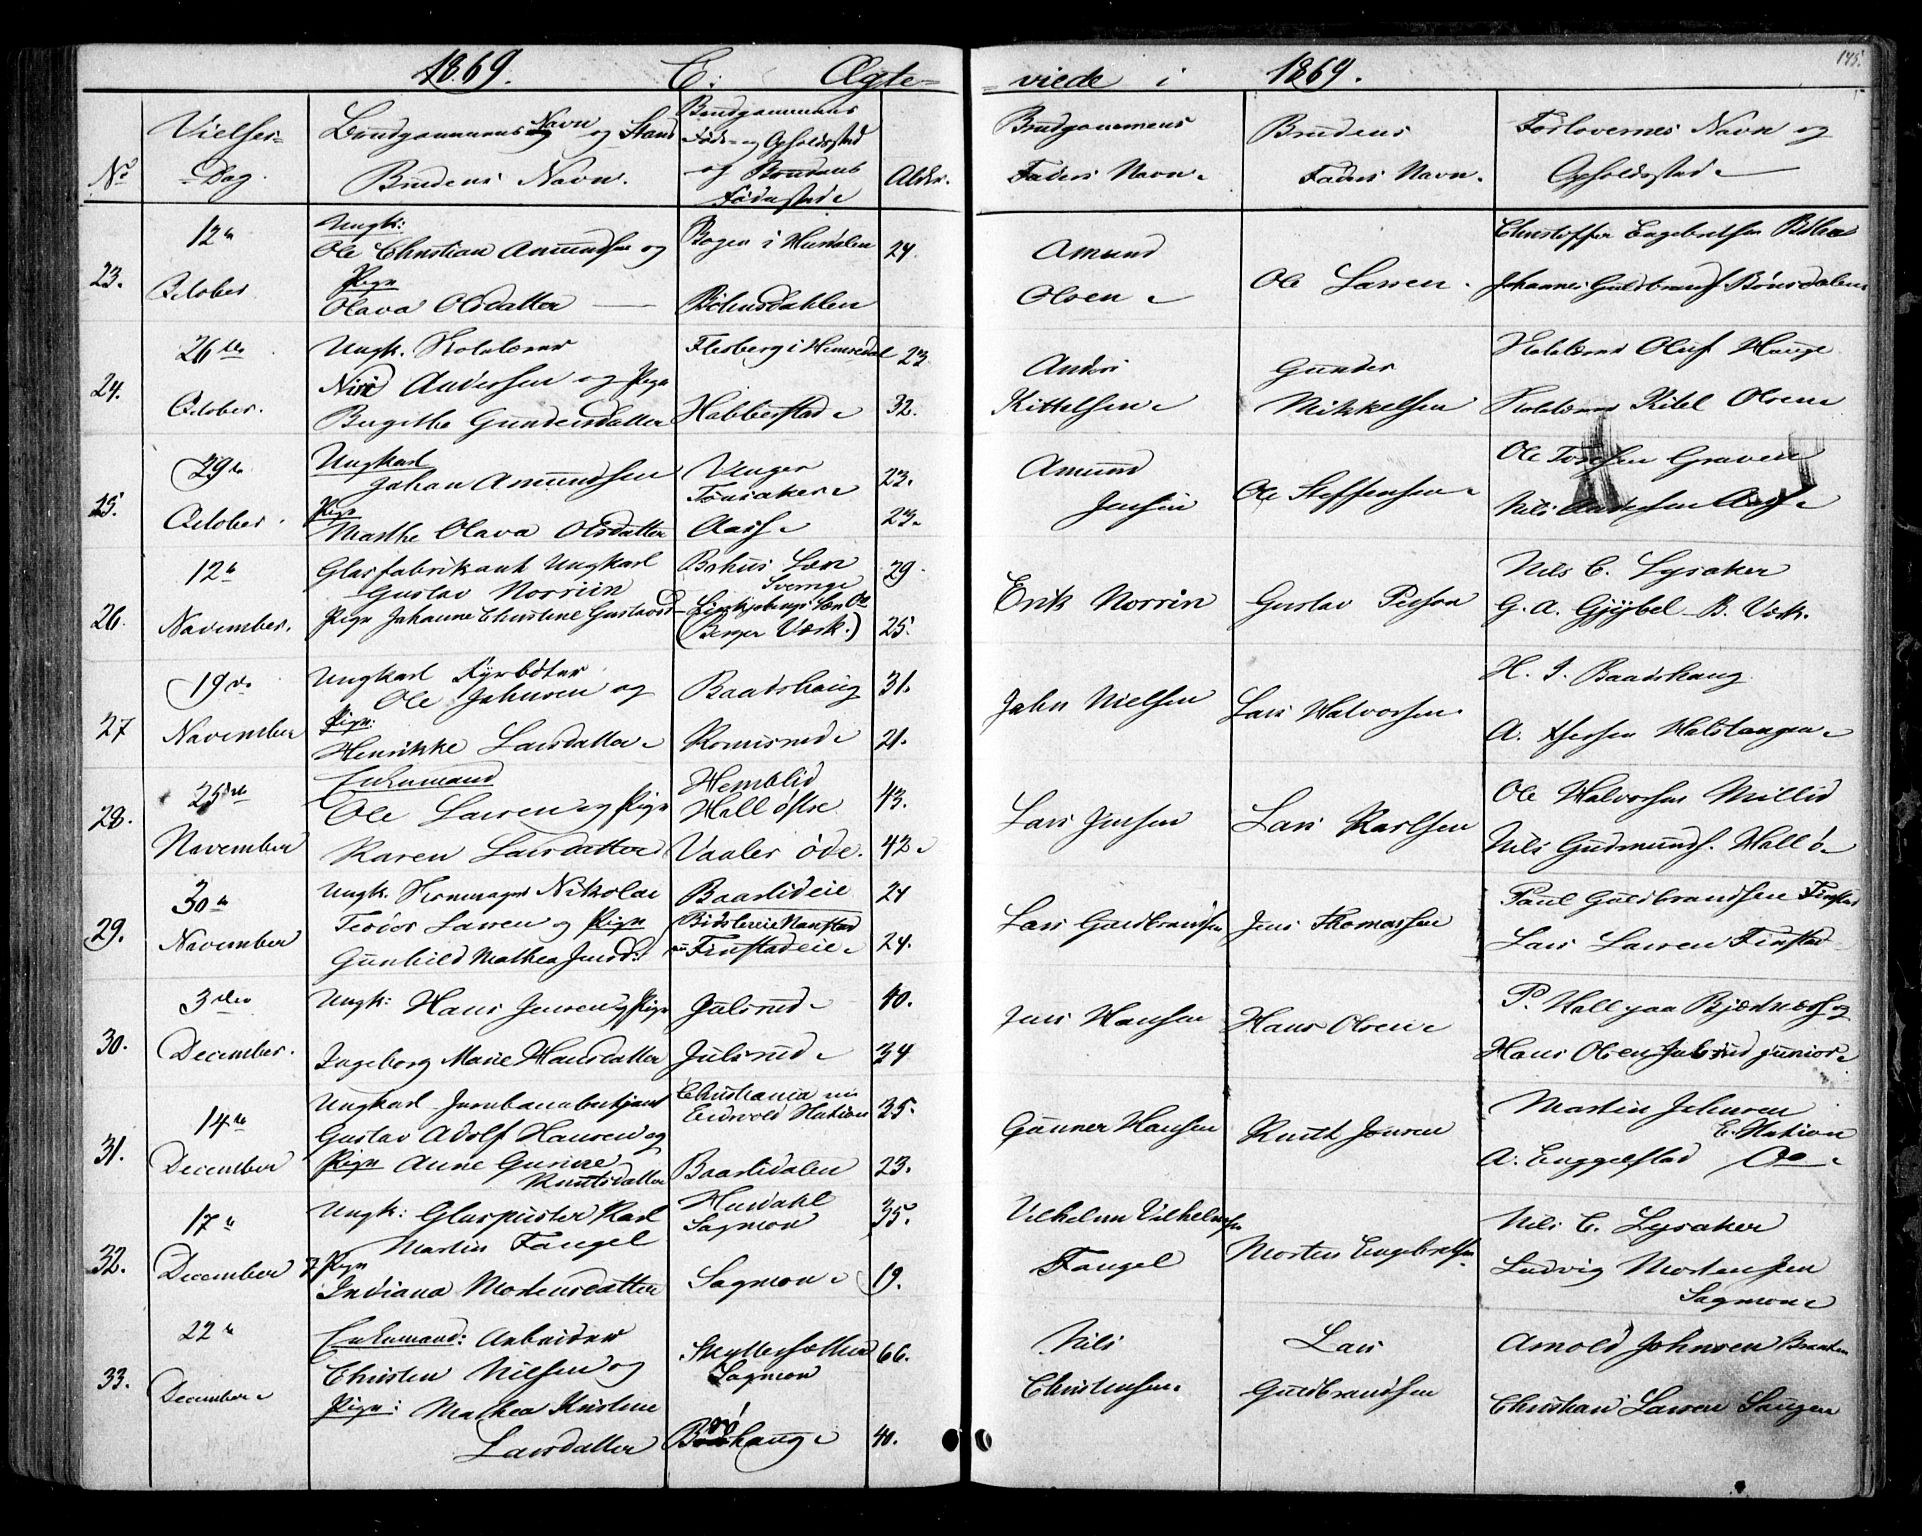 1869. C: Ægte-
viede i 1869.
145.
No
Vielses-
Dag.
Brudgommens Navn og Stand
Brudens Navn.
Brudgommens
Føde- og Opholdssted
og Brudens
Fødested
Alder.
Brudgommens
Faders Navn
Brudens
Faders Navn.
Forlovernes Navn og
Opholdssted
23.
12te
October
Ungk:
Ole Christian Amundsen og
Pige
Olava Olsdatter
Bogen i Hurdalen
24.
Amund
Olsen
Ole Larsen.
Christoffer Engebretsen
Johannes Guldbrands. Bönsdalen
24.
26de
October.
Ungk.
Andersen og Pige
Birgithe Gundersdatter
Flesberg i
23
Habberstad
32.
Anders
Kittelsen
Gunder
Mikkelsen
Oluf Hauge
Kitel Olsen
25.
29de
October.
Ungkarl
Johan Amundsen
Pige
Marthe Olava Olsdatter
Unger
Tønsaker
23.
Aas
23.
Amund
Jensen
Ole Steffensen
Ole Graven
Nils Andersen Aas
26.
12te
November.
Glasfabrikant Ungkarl
Gustav Norrin
Pige Johanne Christine Gustavsd
Bohus Læn
Sverige
29.
(Berger Værk.)
25.
Erik Norrin
Gustav Person
Nils C. Lysaker
G. A. Gjybel B. Værk.
27
19de
November
Ungkarl Fyrbøter
Ole Johnsen og
Pige:
Henrikke Larsdatter
Baadshaug
31.
Romsrud
21.
John Nielsen
Lars Halvorsen
H. J. Baadshaug.
A. Halstangen
28.
25de
November
Enkemand
Ole Larsen og Pige
Karen Larsdatter
Hemblid
Hall østre
43.
Vaaler øde.
42
Lars Jensen
Lars Karlsen
Ole Halvorsen Millid
Nils Gudmunds. Hall ø
29.
30te
November
Ungk. Nikolai
Teodor Larsen og Pige
Gunhild Mathea Jensd:
Baarlideie
24
Finstadeie
24.
Lars Guldbrandsen
Jens Thomassen
Paul Guldbrandsen Finstad
Lars Larsen Finstad
30.
3die
December.
Ungk: Hans Jensen og Pige
Ingeborg Marie Hansdatter
Julsrud
40.
Julsrud
34
Jens Hansen
Hans Olsen
P. Hall paa Bjødnæs og
Hans Olsen Julsrud junior
31.
14de
December
Ungkarl Jernbanebetjent
Gustav Adolf Hansen og
Pige Anne Gurine
Knutsdatter
Christiania nu
Eidsvold Station
25.
Baarlidalen
23.
Gunner Hansen
Knut Jonsen
Martin Johnsen
E. Station
A. Enggelstad
32.
17de
December
Ungk: Glaspuster Karl
Martin Fangel
Pige
Indiana Mortensdatter
Hurdahl
Sagmon
35.
Sagmon
19.
Vilhelm Vilhelmsen
Fangel
Morten Engebretsen
Nils C. Lysaker
Ludvig Mortensen
Sagmon
33.
22de
December
Enkemand: Arbeider
Christen Nilsen og
Pige: Mathea Kristine
Larsdatter
Sagmon
66.
40.
Nils
Christensen
Lars
Guldbrandsen
Arnold Johnsen
Christian Larsen Haugen